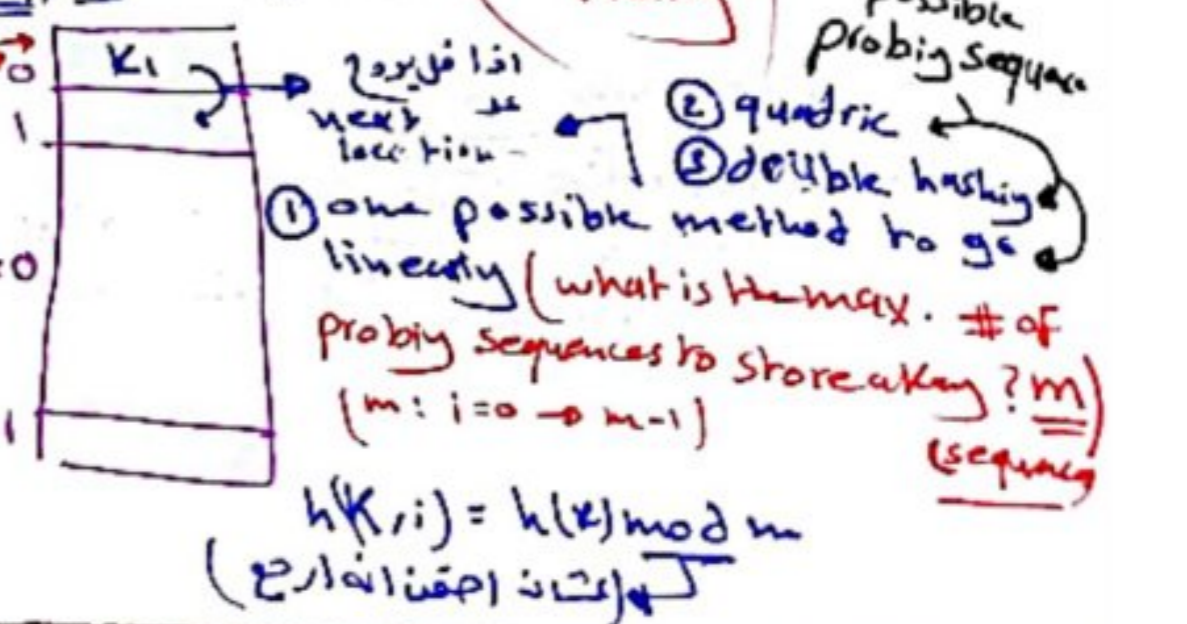 possible
probig sequence
0
K1
اذا فل يروح
عد
next
location
1
② quadric
③ double hashig
① one possible method to go
linearly (what is the max. # of
0
probig sequences to store a key ? m)
(m : i=0 → m-1)
(sequences
1
h(K,i) = h(k) mod m
ارجع)